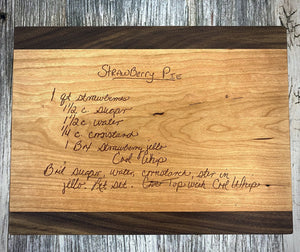 Strawberry Pie
1 qt strawberries
1 1/2 c sugar
1 1/2 c water
1/4 c cornstarch
1 Box Strawberry jello
Cool Whip
Boil sugar, water, cornstarch, stir in
jello. Let Set. Cover top with Cool Whip